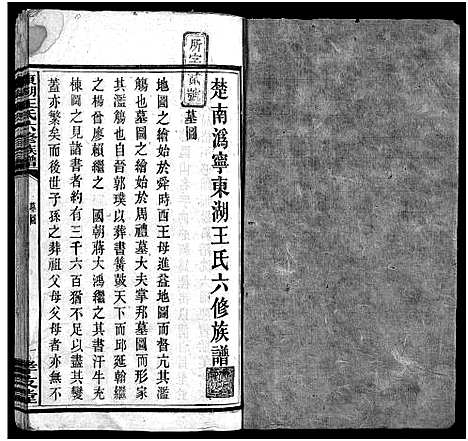 楚南溈寧東湖王氏六修族譜
墓圖
地圖之繪始於舜時西王母進益地圖而督亢其濫
觴也墓圖之繪始於周禮墓大夫掌邦墓圖而形家
其濫觴也自晉郭璞以葬書簧鼓天下而邱延翰繼
之楊曾廖賴繼之 國朝蔣大鴻繼之其書汗牛充
棟圖之見諸書者約有三千六百猶不足以盡其變
蓋亦繁矣而後世子孫之葬祖父母父母者亦無不
東湖王氏六修族譜
墓圖